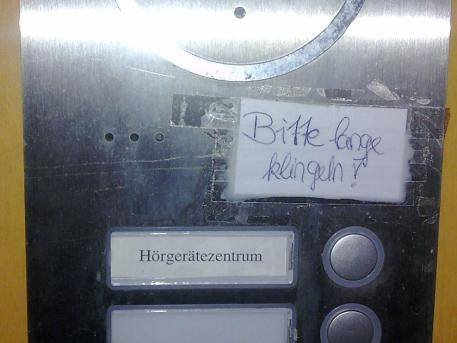 Bitte lange
klingeln!
Hörgerätezentrum